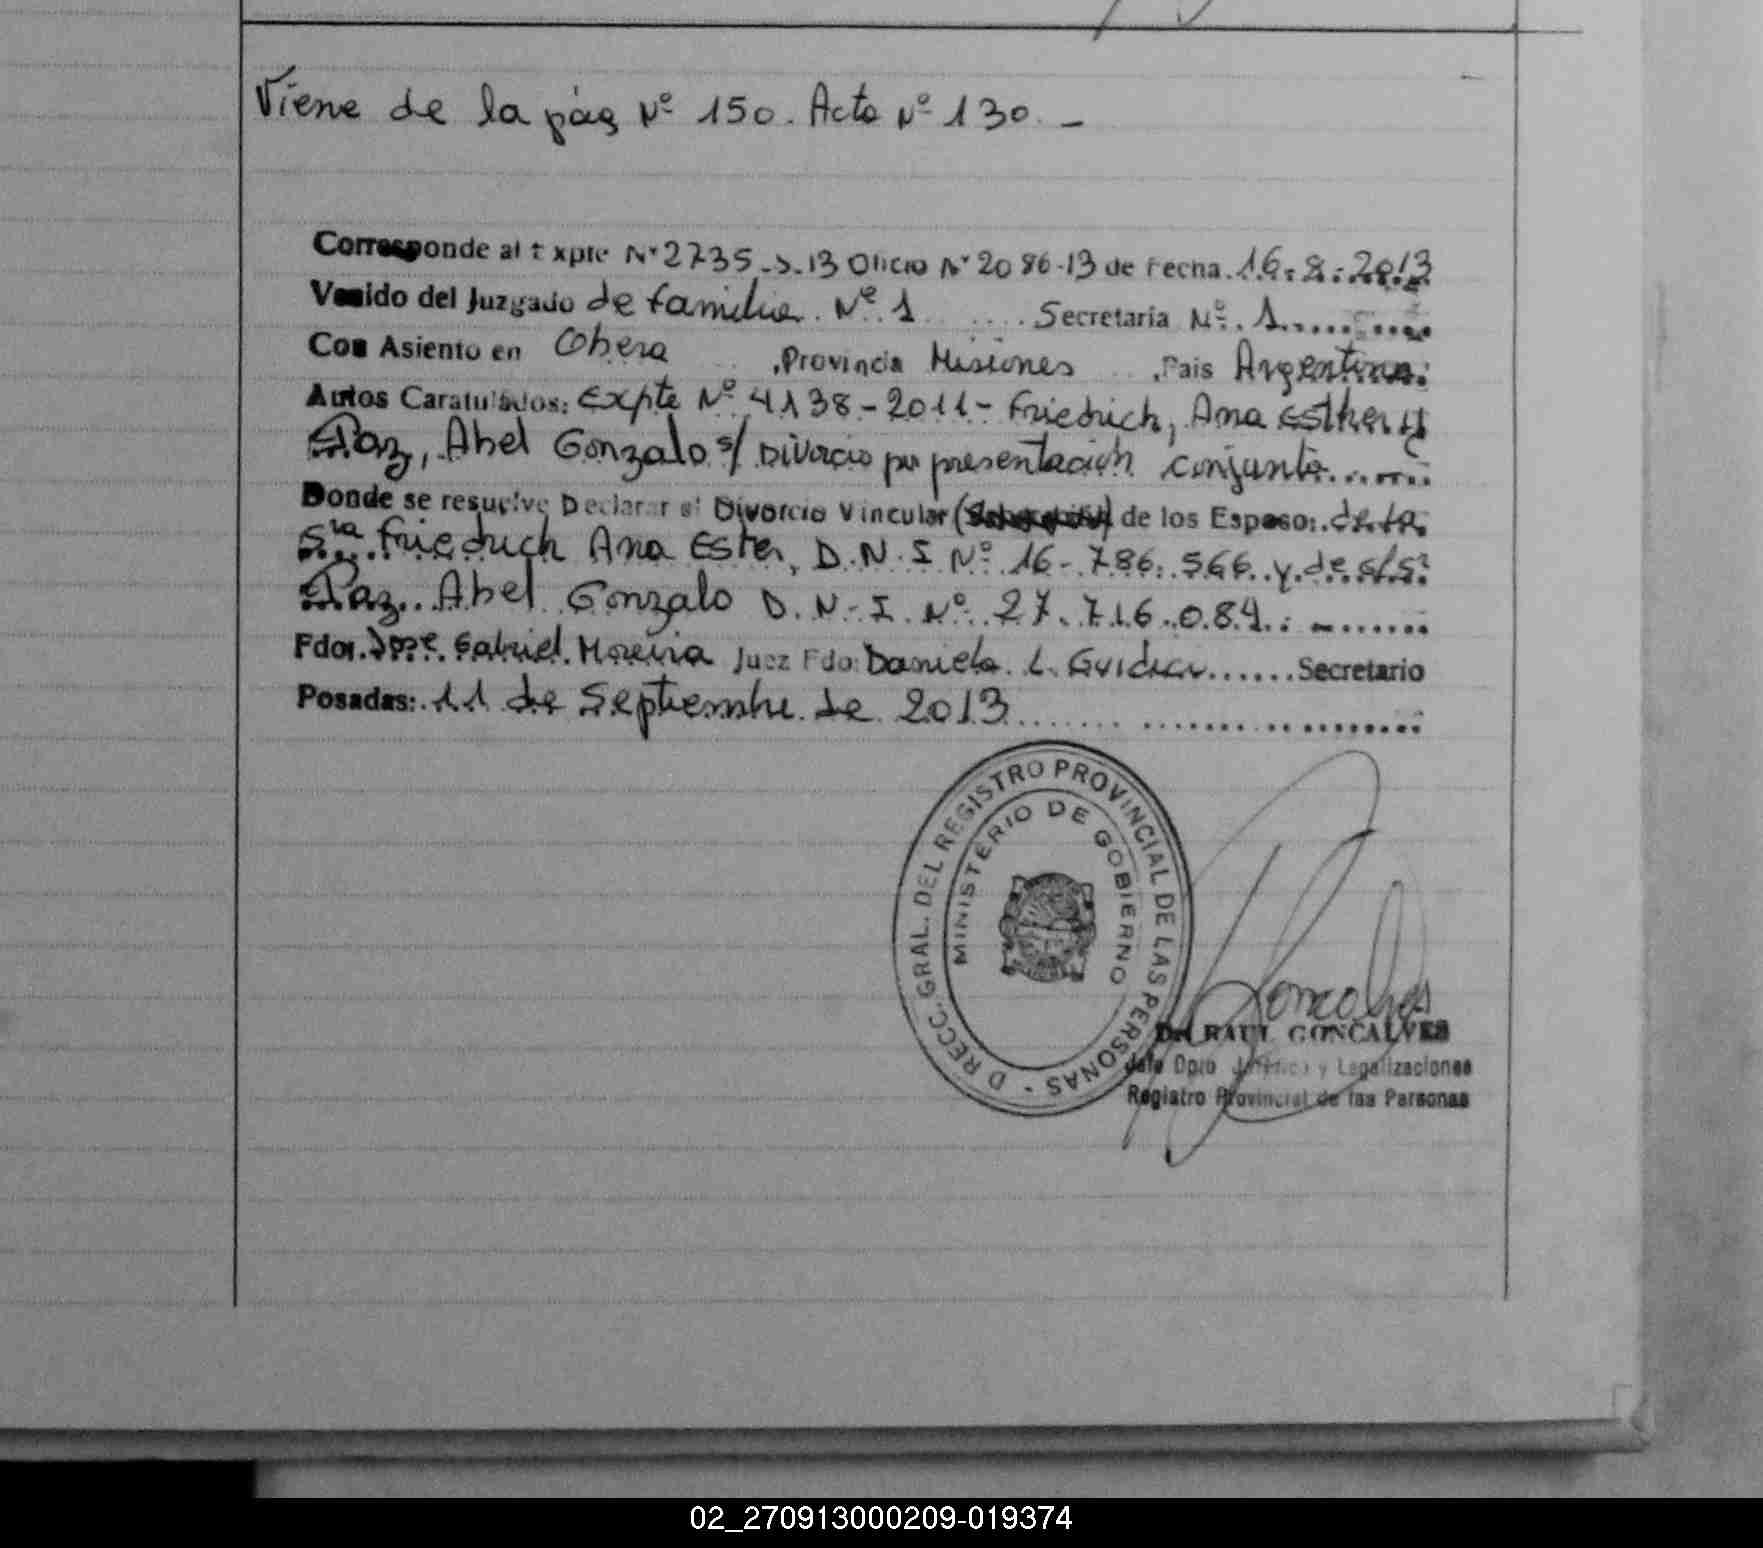 Viene de la pág Nº 150. Acta Nº 130. -
Corresponde al Expte Nº 2735-S-13 Oficio Nº 2086-13 de Fecha 16.8.2013
Venido del Juzgado de familia Nº 1 Secretaria Nº 1
Con Asiento en Obera, Provincia Misiones, Pais Argentina
Autos Caratulados: Expte Nº 4138-2011- Friedrich, Ana Esther y
Paz, Abel Gonzalo s/ Divorcio por presentación conjunta
Donde se resuelve Declarar el Divorcio Vincular de los Esposo: de la
Sra Friedrich Ana Ester, D.N.I Nº 16-786.566 y de
Paz Abel Gonzalo D.N.I. Nº 27.716.084.-
Fdo: Jose Gabriel Moreira Juez Fdo: Daniela L. Secretario
Posadas: 11 de Septiembre de 2013
DIRECC. GRAL. DEL REGISTRO PROVINCIAL DE LAS PERSONAS -
MINISTERIO DE GOBIERNO
Goncalves
Dr. RAUL GONCALVES
Jefe Dpto Jurídico y Legalizaciones
Registro Provincial de las Personas
02_270913000209-019374